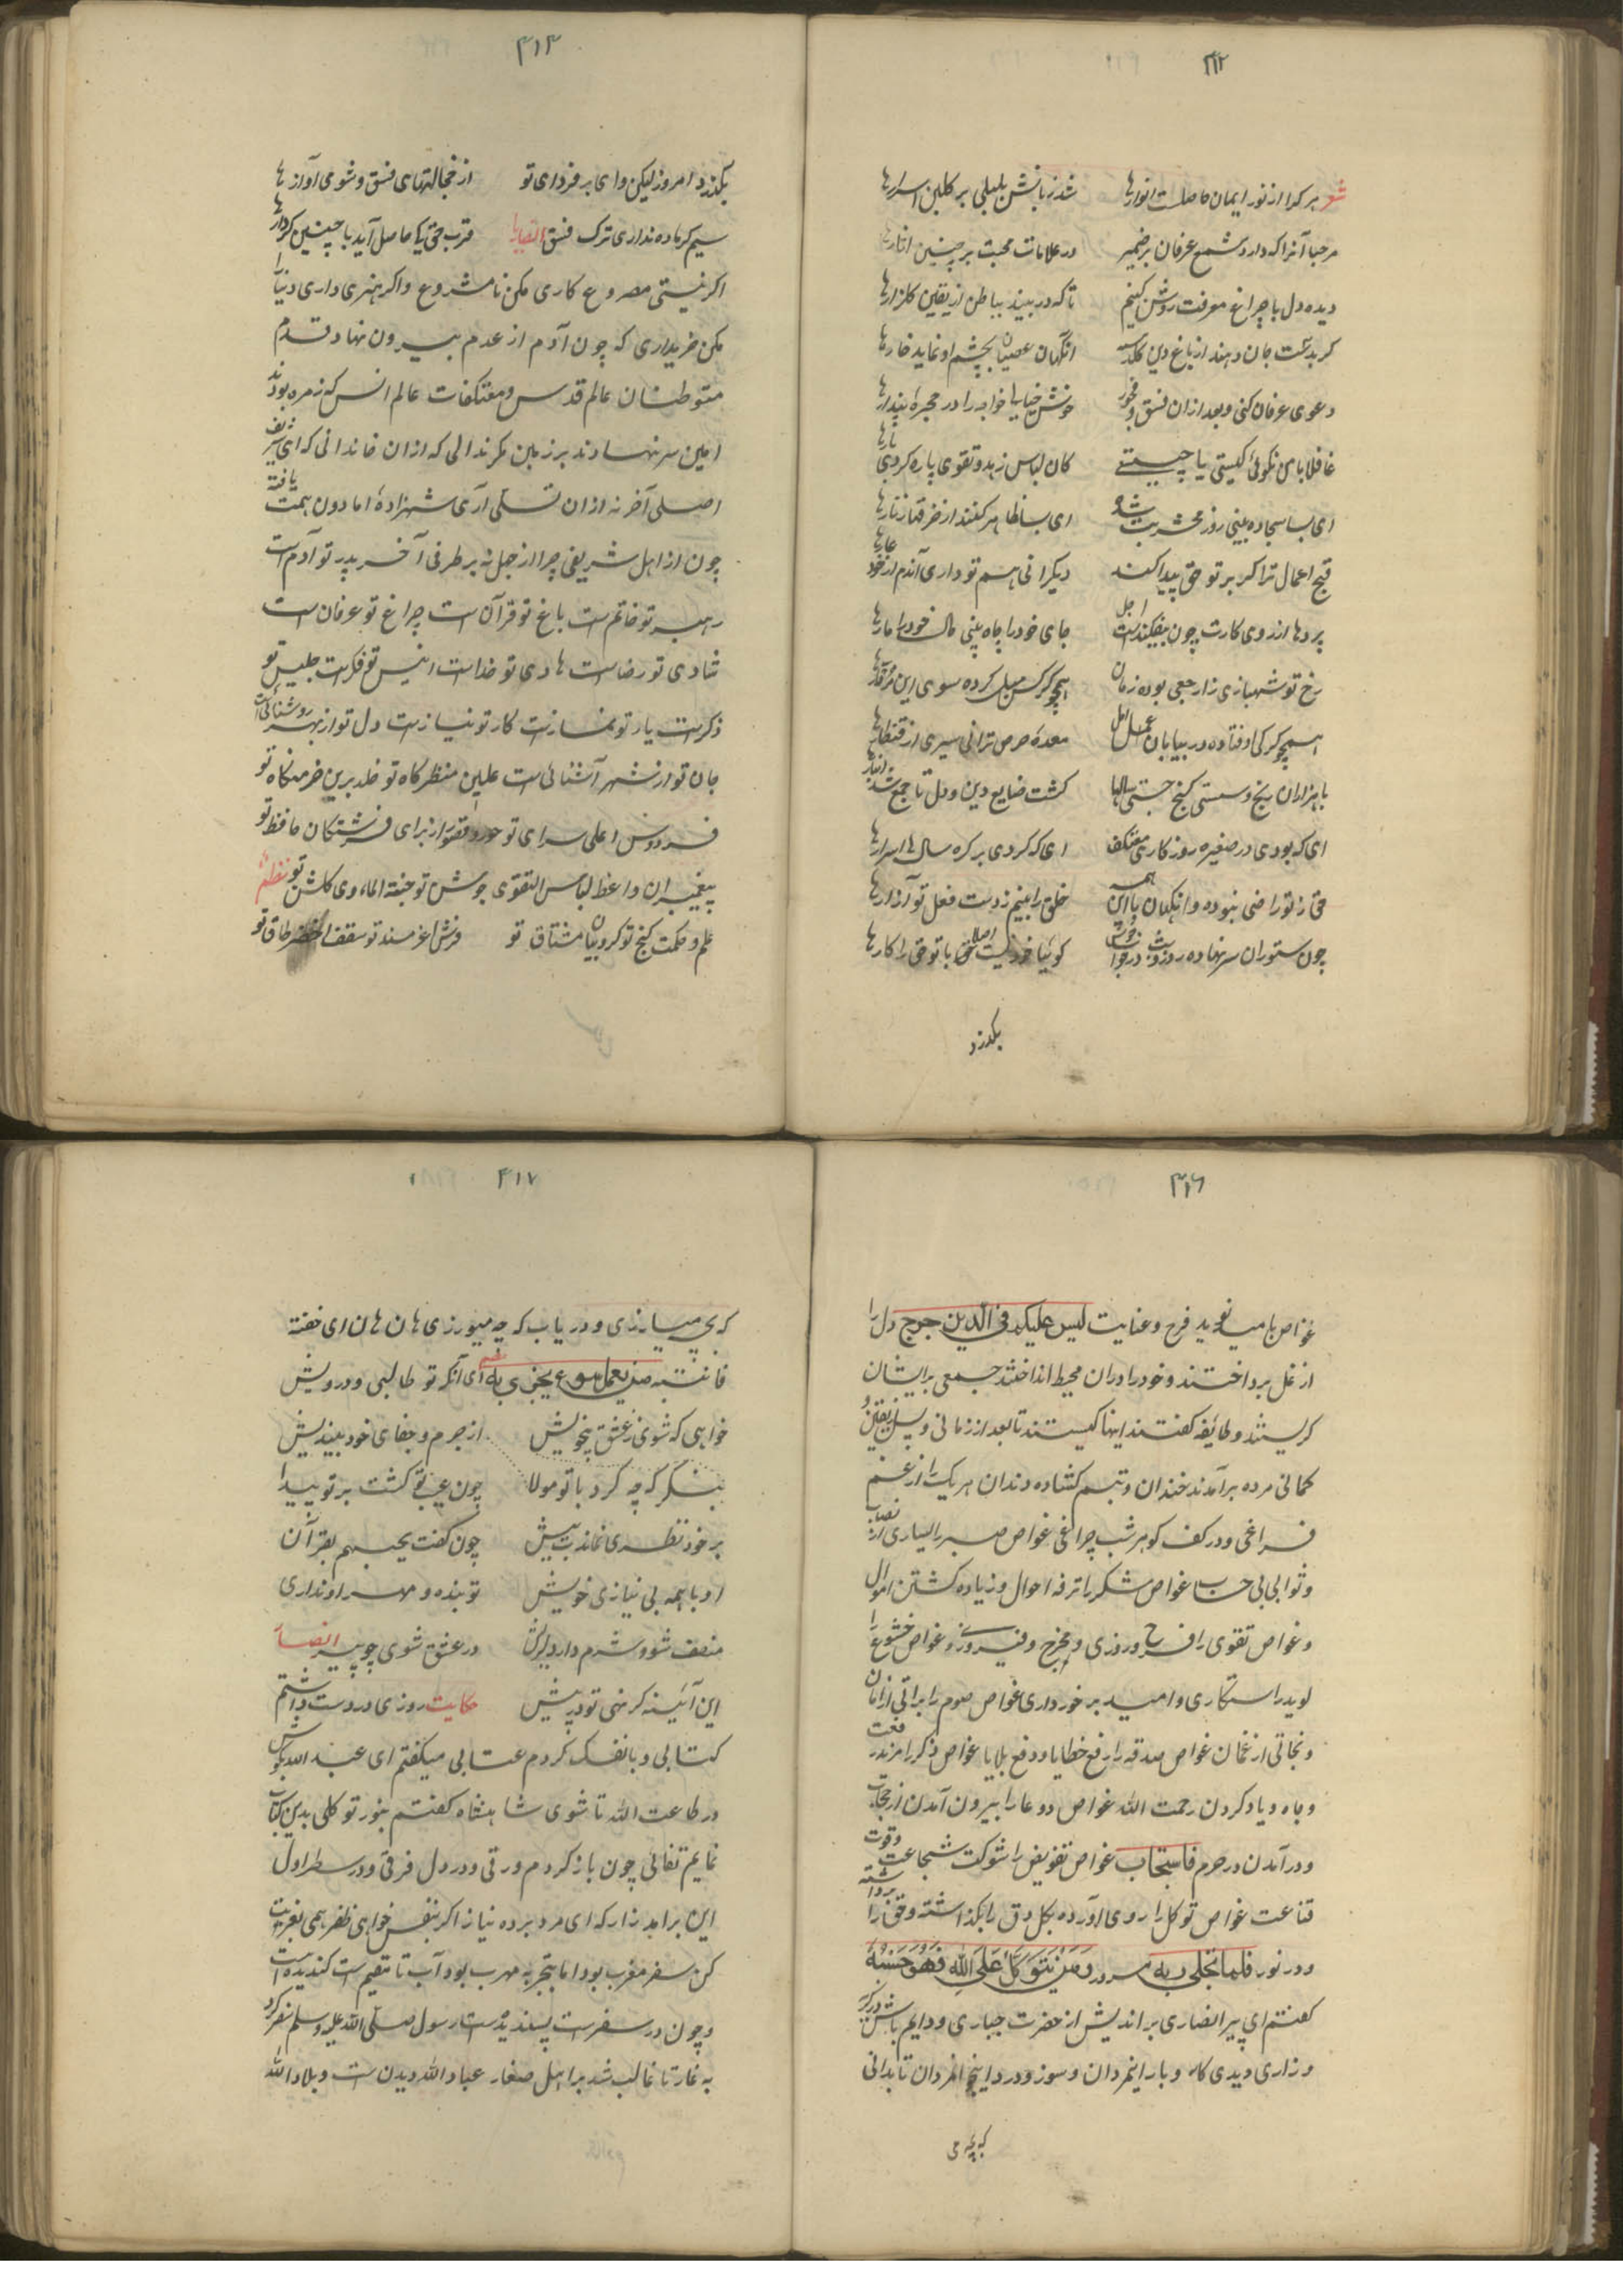 ۴۱۲
شعر هر کرا از نور ایمان حاصلست انوارها شد زبانش بلبلی بر گلبن اسرارها
مرحبا آنرا که دارد شمع عرفان بر ضمیر در علامات محبت بر چنین
دیده دل با چراغ معرفت روشن کنیم تا که در بیند بباطن از یقین کلزارها
کر بدست جان دهند از باغ دین آنکهان عصیان بچشم او نماید خارها
دعوی عرفان کنی وبعد ازان فسق و فجور خوش خیالی خواجه را در حجره پندارها
غافلا با من نکوئی کیستی یا چیستی کان لباس زهد و تقوی پاره کردی بارها
ای بسا سجاده بینی روز محشر بت شده ای بسا ظاهر کنند از خرقها زنارها
قبح اعمال ترا کر بر تو حق پیدا کند دیکرانی هم تو داری آندم از خود عارها
پردها از روی کارت چون بیفکند اجل جای خود را چاه بینی مال خود را مارها
رخ تو شهبازی زارجعی بوده زمان همچو کرکس میل کرده سوی این مردارها
همچو کرکی اوفتاده در بیابان عمل معده حرص ترانی سیری از
با هزاران رنج و سستی کنج جستی سالها کشت ضایع دین و دل تا جمع شد انبارها
ای که بودی در صغیره روز کاری معتکف ای که کردی بر کره سال ها اسرارها
حق ز تو راضی نبوده وانکهان با این همه خلق را بینم ز دست فعل تو آزارها
چون ستوران سر نهاده روز و شب در خواب خوش کوئیا خود نیست اصلا حق با تو حق را کارها
بکذرد
۴۱۳
بکذرد امروز لیکن وای بر فردای تو از خجالتهای فسق و شومی آوازها
سیم کر باده نداری ترک فسق انصاریا قرب حق کی حاصل آید با چنین کردارها
اکر نیستی مصروع کاری مکن نامشروع واکر هنری داری دنیا را
مکن خریداری که چون آدم از عدم بیرون نهاد قدم
متوطنان عالم قدس و معتکفات عالم انس که زمره بودند
امین سر نهادند بر زمین مکر ندالی که ازان خاندانی که ای شریف
اصلی آخر نه ازان نسلی آری شهزاده اما دون همت یافته
چون از اهل شریفی چرا از جهل نه بر طرفی آخر پدر تو آدم است
رهبر تو خاتم است باغ تو قرآن است چراغ تو عرفان است
شادی تو رضاست هادی تو خداست انیس تو فکرت جلیس تو
ذکرست یار تو نمازست کار تو نیازست دل تو از بهر روشنائی است
جان تو از شهر آشنائی است علیین منظر کاه تو خلد برین خرمنکاه تو
فردوس اعلی سرای تو حور و قصور از برای فرشتکان حافظ تو
پیغمبران واعظ لباس التقوی جوشن تو جنة الماوی کلشن تو نظم
علم و حکمت کنج تو کروبیان مشتاق تو فرش اغبر مسند تو سقف اخضر طاق تو
۴۱۶
غواص با میدهد نوید فرح و عنایت لیس علیکم فی الدین حرج دل را
از غل پرداختند و خود را دران محیط انداختند جمعی بر ایشان
کریستند و طائفه کفتند اینها کیستند تا بعد از زمانی و پس یقین و
کمانی مرده بر آمدند خندان و تبسم کشاده دندان هر یک را از غم
فراغی و در کف کوهر شب چراغی غواص صبر را بسیاری از نصاب
و ثوابی بی حساب غواص شکر را ترفه احوال و زیاده کشتن اموال
و غواص تقوی را فرح و روزی و مخرج و فیروزی و غواص خشوع را
نوید رستکاری و امید بر خورداری غواص صوم را براتی از امان
و نجاتی از غمان غواص صدقه را رفع خطایا و دفع بلایا غواص ذکر را مرفعت
و جاه و یاد کردن رحمت الله غواص دعا را بیرون آمدن از حجاب
و در آمدن در حرم فاستجاب غواص تفویض را شوکت شجاعت و قوت
قناعت غواص توکل را روی آورده بکل دق را بکذاشته و حق را برداشته
و در نور فلما تجلی ربه مسرور و من یتوکل علی الله فهو حسبه
کفتم ای پیر انصاری بر اندیش از حضرت جباری و دایم باش در کریه
و زاری دیدی کار و بار اینمردان و سوز و درد اینجانمردان تا بدانی
که بچه می
۴۱۷
که بچه میبازی و دریاب که چه میورزی هان هان ای خفته
فانتبه من یعمل سوء یجز به نظم ای آنکه تو طالبی و درویش
خواهی که شوی ز عشق بیخویش از جرم و جفای خود بیندیش
بنکر که چه کرد با تو مولا چون عیب تو کشت بر تو پیدا
بر خود نظری نماندت پیش چون کفت یحبهم بقرآن
او با همه بی نیازی خویش تو بنده و مهر او نداری
منصف شو و شرم دار در عشق شوی چو پیر انصار
این آئینه کر نهی تو در پیش حکایت روزی در دست داشتم
کتابی و با نفسک کردم عتابی میکفتم ای عبد الله بکوش
در طاعت الله تا شوی شاهنشاه کفتم بنور تو کلی بدین کتاب
نمایم تفالی چون باز کردم ورقی و در دل فرقی و در سطر اول
این بر آمد زار که ای مرد برده نیاز اکر بنفس خواهی ظفر همی بغربت
کن سفر مغرب بود اما بتجربه مهرب بود آب تا مقیم است کندیده است
و چون در سفرست پسندیدست رسول صلی الله علیه وسلم سفر کرد
به غار تا غالب شد بر اهل صغار عباد الله دیدن است و بلاد الله